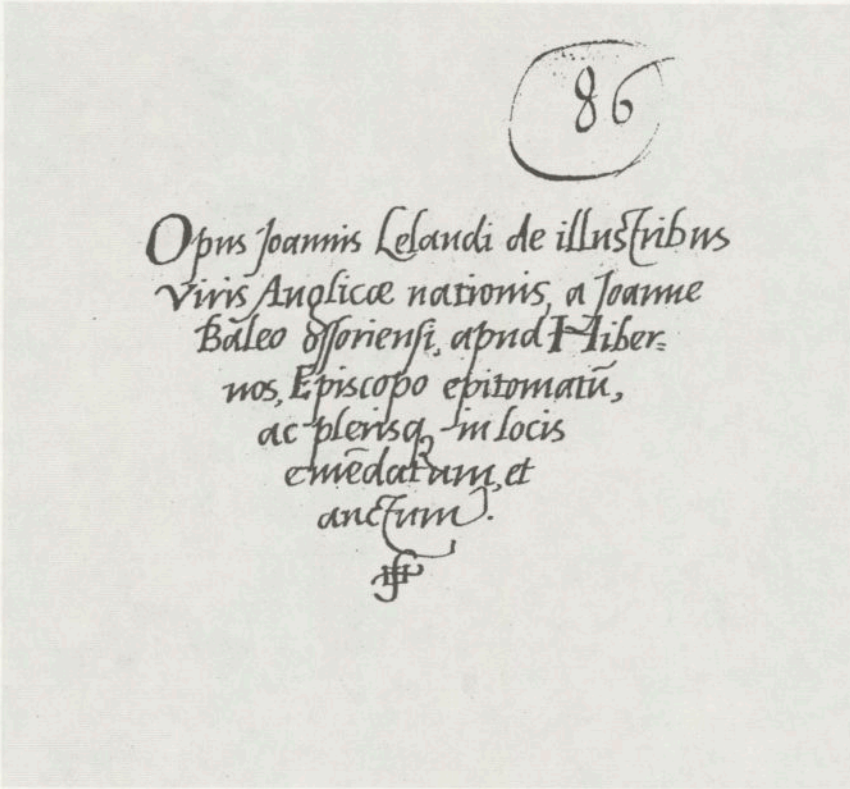 86
Opus Joannis Lelandi de illustribus
Viris Anglicæ nationis, a Joanne
Baleo Ossoriensi, apud Hiber=
nos, Episcopo epitomatū,
ac plerisq in locis
emēdatum, et
auctum.